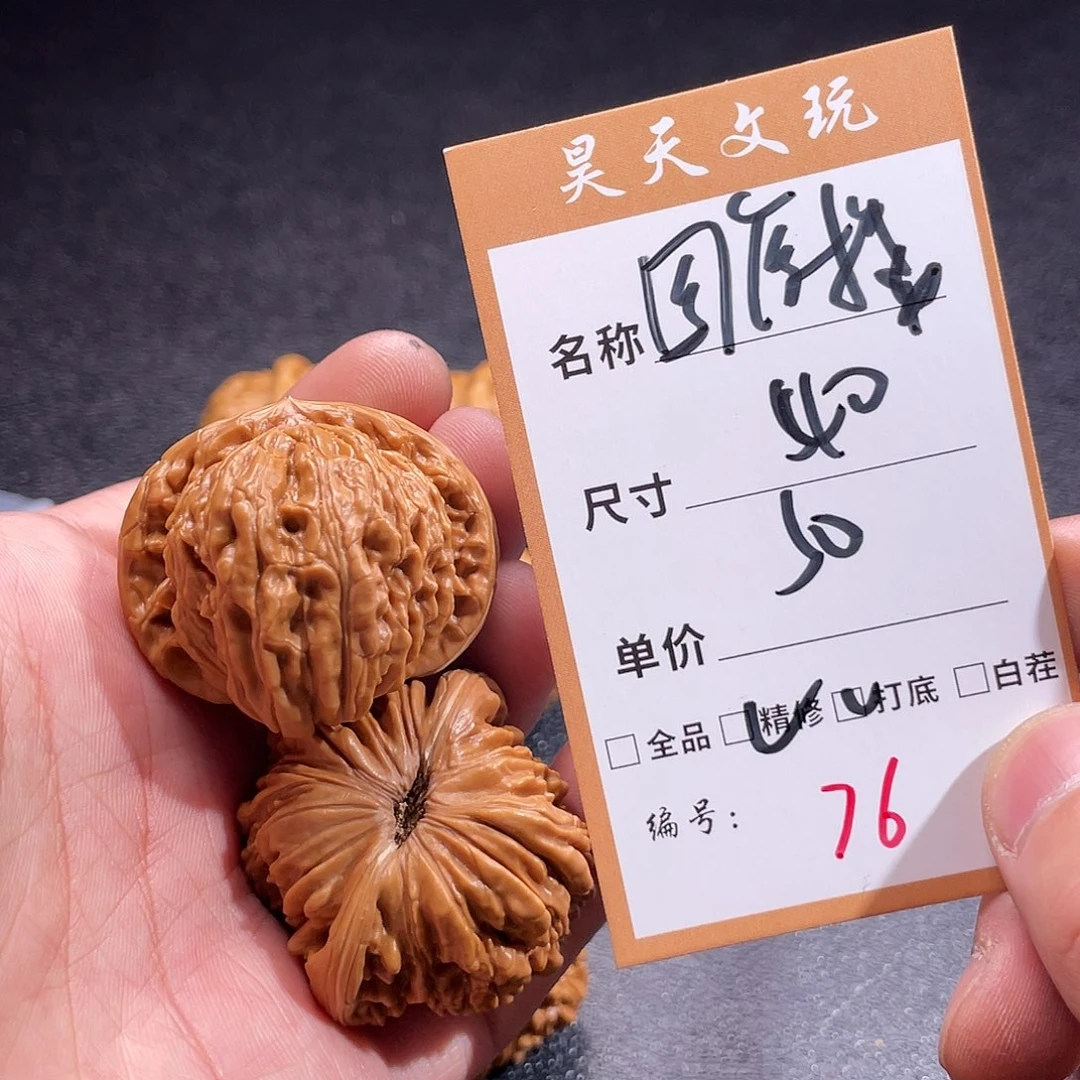 昊天文玩
名称
尺寸 40
单价 50
全品 精修 打底 白茬
编号: 76